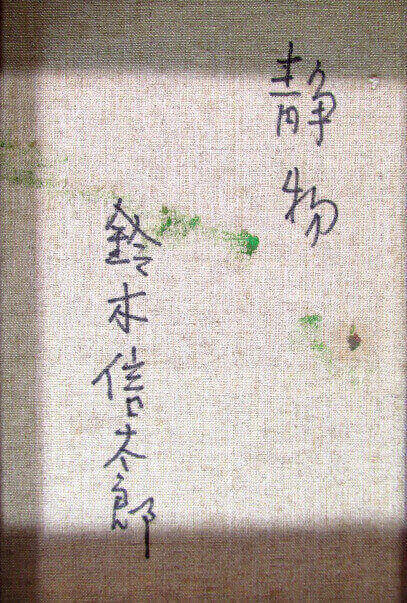 静物
鈴木信太郎